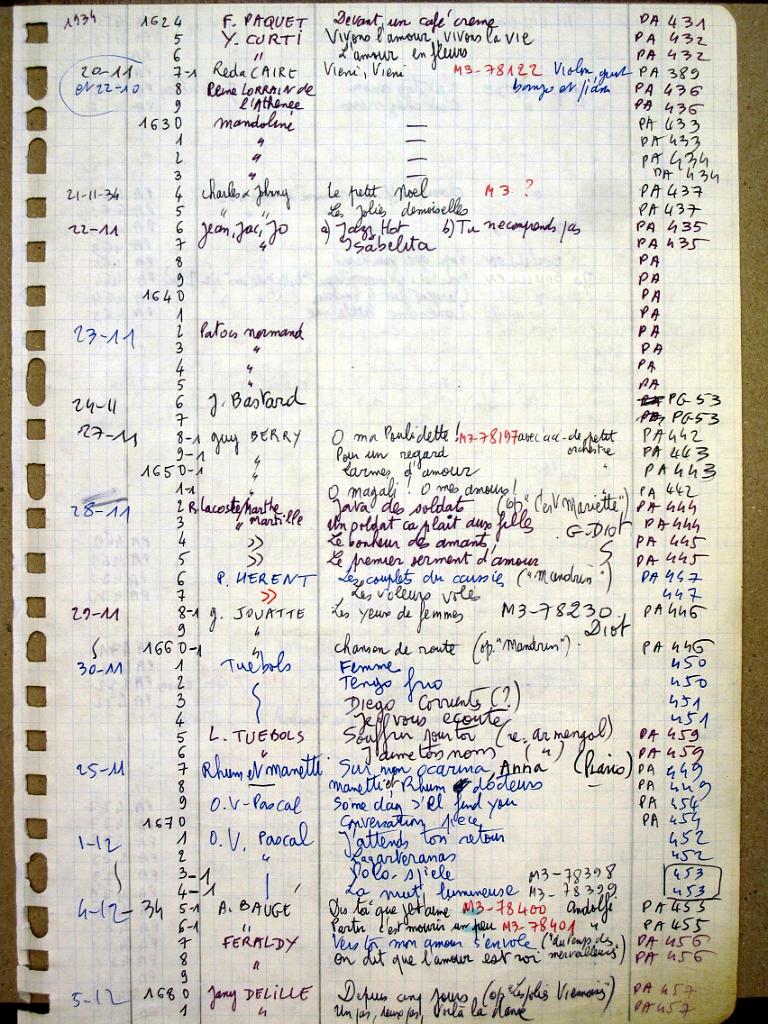 1934 1624 F. PAQUET Devant un café crème PA 431
5 Y. CURTI Vivons l'amour, vivons la vie PA 432
6 " L'amour en fleurs PA 432
20-11 7-1 Reda CAIRE Vieni, Vieni M3-78122 Violon, PA 389
et 22-10 8 Rene LORRAIN de bongo et piano PA 436
9 l'Athenée PA 436
1630 mandoline — PA 433
1 " — PA 433
2 " — PA 434
3 " — PA 434
21-11-34 4 Charles & Johnny Le petit Noel M3 ? PA 437
5 " " Les jolies demoiselles PA 437
22-11 6 Jean, Jac, Jo a) Jazz Hot b) Tu ne comprends pas PA 435
7 " Isabelita PA 435
8 PA
9 PA
1640 PA
1 PA
23-11 2 Patois normand PA
3 " PA
4 " PA
5 " PA
24-11 6 J. Bastard PG 53
7 PG 53
27-11 8-1 guy BERRY O ma Poulidette ! M3-78197 avec acc. de petit PA 442
9-1 " Pour un regard orchestre PA 443
1650-1 " Larmes d'amour " PA 443
1-1 " O magali ! O mes amours ! " PA 442
28-11 2 R. Lacoste Marthe Java des soldats (op "C'est Mariette") PA 444
3 " Martille Un soldat ca plait aux filles G. Diot PA 444
4 » Le bonheur des amants PA 445
5 » Le premier serment d'amour PA 445
6 P. HERENT Les couplets du caissier ("Mandrin") PA 447
7 » Les voleurs volés 447
29-11 8-1 g. JOUATTE Les yeux de femmes M3-78230 PA 446
9 " Diot
1660-1 " chanson de route (op. "Mandrin") PA 446
30-11 1 Tuebols Femme 450
2 Tengo frio 450
3 Diego Corrientes (?) 451
4 Je vous ecoute 451
5 L. TUEBOLS Souffrir pour toi (re. armengol) PA 459
6 " J'aime tes nons ( " ) PA 459
25-11 7 Rhum et Manetti Sur mon ocarina, Anna (Piano) PA 449
8 manetti et Rhum dodeurs PA 449
9 O.V-Pascal Some day I'll find you PA 454
1670 Conversation piece PA 454
1-12 1 O.V. Pascal J'attends ton retour 452
2 " Lagarteranas 452
3-1 Yolo, M3-78398 453
4-1 La nuit lumineuse M3-78399 453
4-12-34 5-1 A. BAUGE Dis toi que je t'aime M3-78400 Andolfi PA 455
6-1 Partir c'est mourir un peu M3-78401 " PA 455
7 FERALDY Vers toi mon amour s'envole ("du temps des PA 456
8 " On dit que l'amour est roi merveilleuses") PA 456
9
5-12 1680 Jany DELILLE Depuis cinq jours (op "Les jolies Viennoises") PA 457
1 " Un pas, deux pas, voilà la danse PA 457